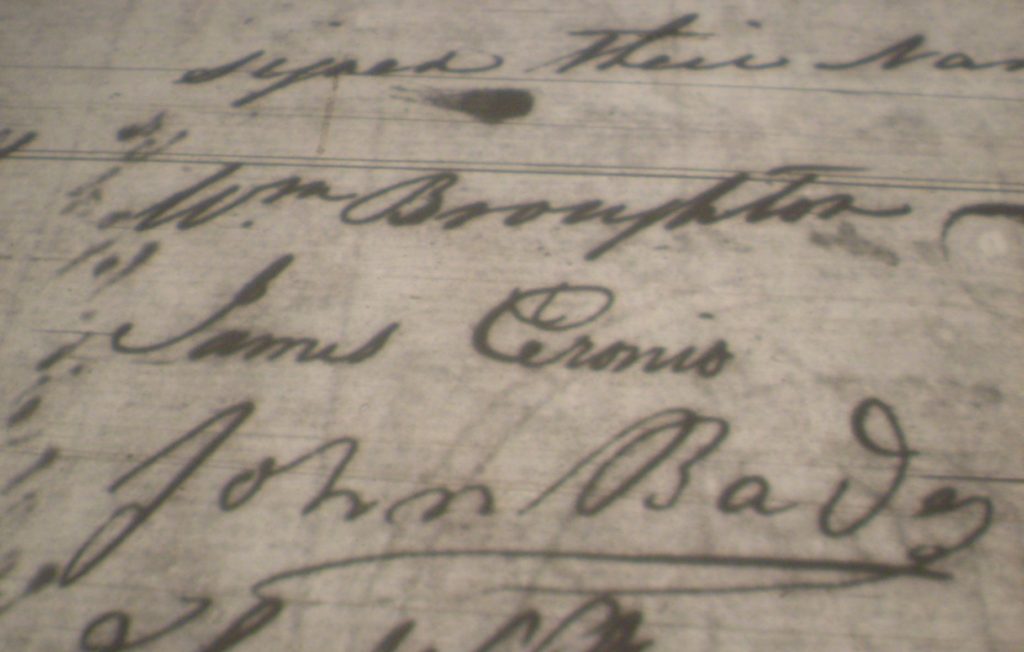 signed their Nam
Wm Broughton
James Cronis
John Bades